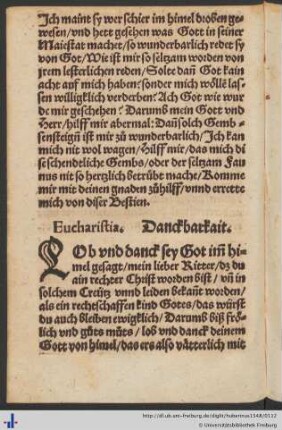 Ich maint sy wer schier im himel droben ge-
wesen/vnd hett gesehen was Gott in seiner
Maiestat machet/so wunderbarlich redet sy
von Got/Wie ist mir so seltzam worden von
jrem lesterlichen reden/Solte dañ Got kain
acht auf mich haben? sonder mich wölle las-
sen willigklich verderben? Ach Got wie wur-
de mir geschehen? Darumb mein Gott vnd
Herr/hilff mir abermal: Dañ solch Gemb-
sensteigñ ist mir zů wunderbarlich/Ich kan
mich nit wol wagen/Hilff mir/das mich di
se schendtliche Gembs/oder der seltzam Fau
nus nit so hertzlich betrübt mache/Komme
mir mit deinen gnaden zůhilff/vnnd errette
mich von diser Bestien.
Eucharistia. Danckbarkait.
LOb vnd danck sey Got im̃ hi-
mel gesagt/mein lieber Ritter/dz du
ain rechter Christ worden bist/vñ in
solchem Creütz vnnd leiden bekañt worden/
als ein rechtschaffen kind Gotes/das würst
du auch bleiben ewigklich/Darumb biß frö-
lich vnd gůts můts/lob vnd danck deinem
Gott von himel/das ers also våtterlich mit
http://dl.ub.uni-freiburg.de/diglit/haberinus1548/0112
© Universitätsbibliothek Freiburg